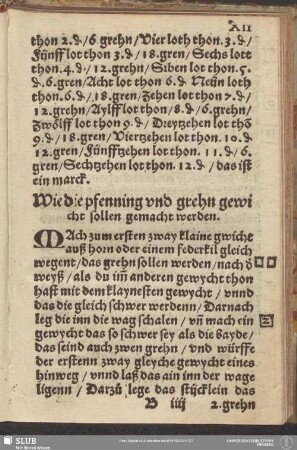 XII
thon 2.d/6 grehn/Vier loth thon.3.d/
Fünff lot thon 3.d/18.gren/Sechs lott
thon.4.d/12.grehn/Siben lot thon.5.
d.6.gren/Acht lot thon 6.d Neün loth
thon.6.d/18.gren/Zehen lot thon 7.d/
12.grehn/Aylff lot thon/8.d/6.grehn/
Zwölff lot thon 9.d/Dreytzehen lot thō
9.d/18.gren/Viertzehen lot thon.10.d
12.gren/Fünfftzehen lot thon.11.d/6.
gren/Sechtzehen lot thon.12.d/das ist
ein marck.
Wie die pfenning vnd grehn gewi
cht sollen gemacht werden.
MAch zum ersten zway klaine gwicht
auß horn oder einem federkil gleich
wegent/das grehn sollen werden/nach d
weyß/als du im̄ anderen gewycht thon
hast mit dem klaynesten gewycht/vnnd
das die gleich schwer werdenn/Darnach
leg die inn die wag schalen/vn̄ mach ein
gewycht das so schwer sey als die bayde/
das seind auch zwen grehn/vnd würffe
der erstenn zway gleyche gewycht eines
hinweg/vnnd laß das ain inn der wage
ligenn/Darzů lege das stücklein das
B iiij 2.grehn
SLUB
Wir führen Wissen.